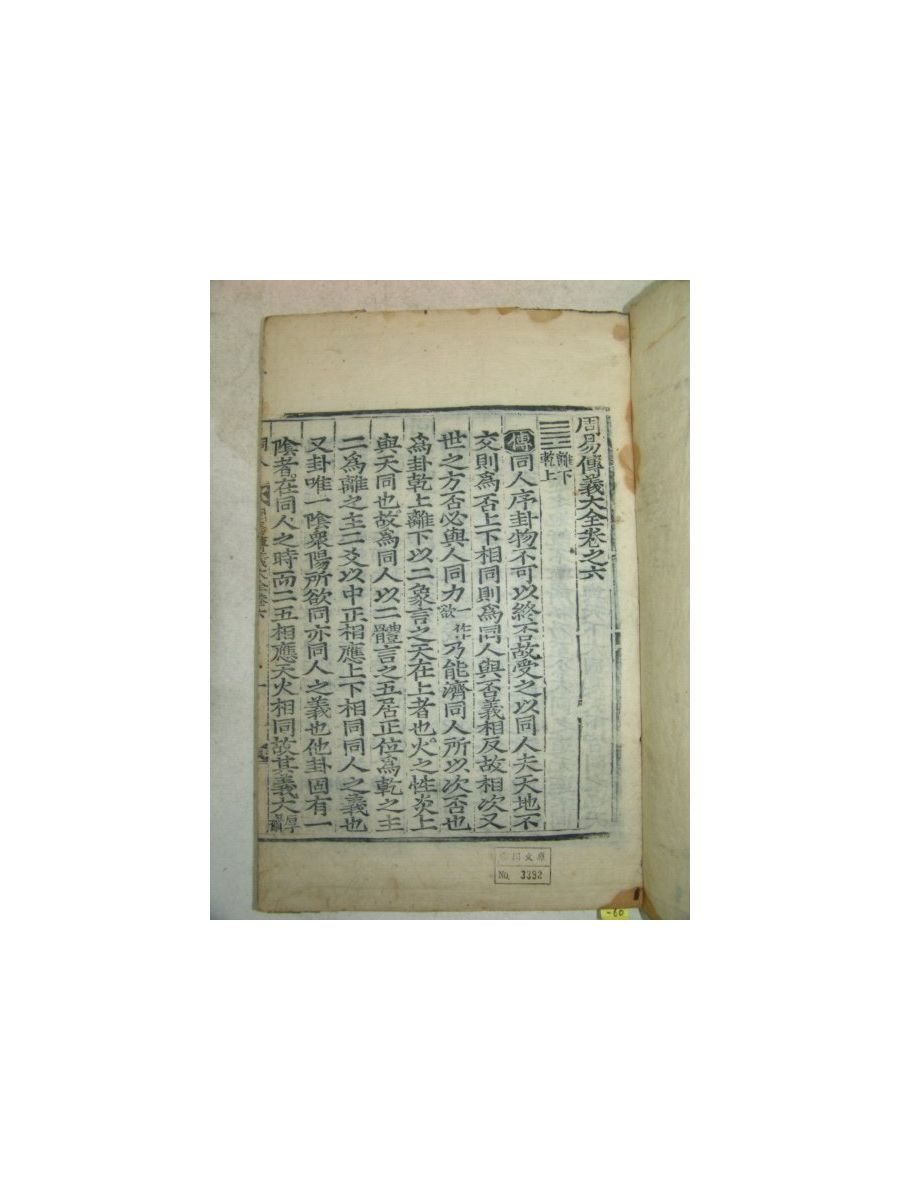 周易傳義大全卷之六
離下
乾上
傳同人序卦物不可以終否故受之以同人夫天地不
交則爲否上下相同則爲同人與否義相反故相次又
世之方否必與人同力一作欲乃能濟同人所以次否也
爲卦乾上離下以二象言之天在上者也火之性炎上
與天同也故爲同人以二體言之五居正位爲乾之主
二爲離之主二爻以中正相應上下相同同人之義也
又卦唯一陰衆陽所欲同亦同人之義也他卦固有一
陰者在同人之時而二五相應天火相同故其義大
同人
文庫
No. 3392
-60